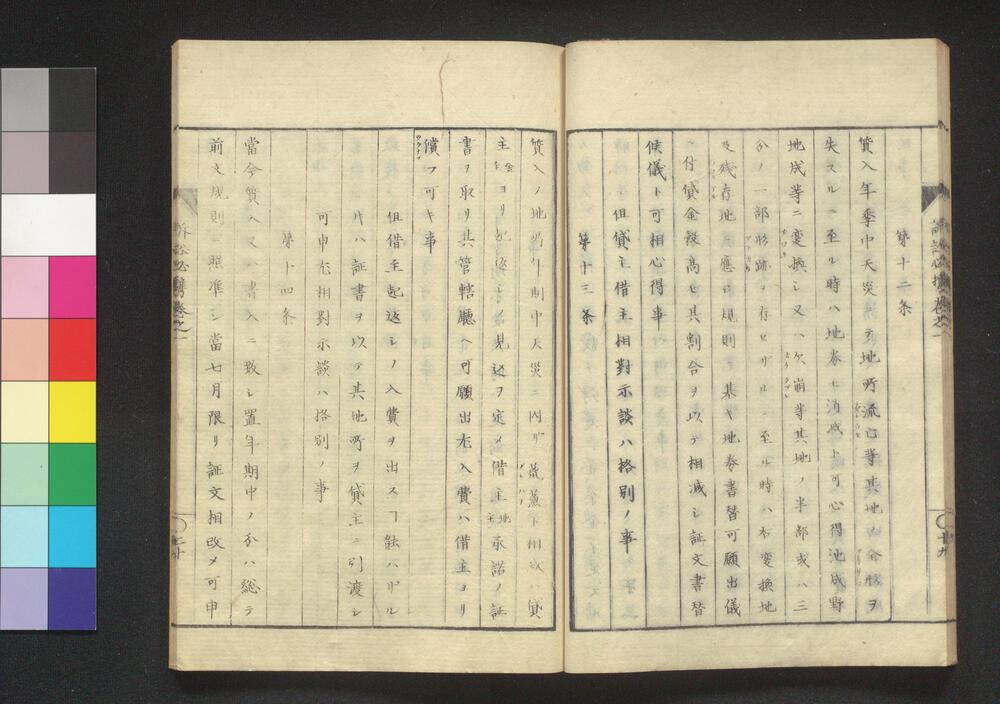 第十二条
質入年季中天災ニテ地所流亡等其地ノ全形ヲ
失スルニ至ル時ハ地券モ消滅ト可心得池成野
地成等ニ変換シ又ハ欠崩等其地ノ半部或ハ三
分ノ一部形跡ヲ存セザルニ至ル時ハ右変換地
及残存地相応ノ規則ニ基キ地券書替可願出儀
ニ付貸金穀高モ其割合ヲ以テ相減シ証文書替
候儀ト可相心得事
但貸主借主相対示談ハ格別ノ事
第十三条
質入ノ地所年期中天災ニ因リ荒蕪ト相成ハ貸
主ヨリ起返シノ見込ヲ定メ借主承諾ノ証
書ヲ取リ其管轄庁ヘ可願出尤入費ハ借主ヨリ
償フ可キ事
但借主起返シノ入費ヲ出スヿ能ハザル
片ハ証書ヲ以テ其地所ヲ貸主ニ引渡シ
可申尤相対示談ハ格別ノ事
第十四条
當今質入又ハ書入ニ致シ置年期中ノ分ハ総テ
前文規則ニ照準シ當七月限リ証文相改メ可申
訴訟必携巻之一
十九
二十